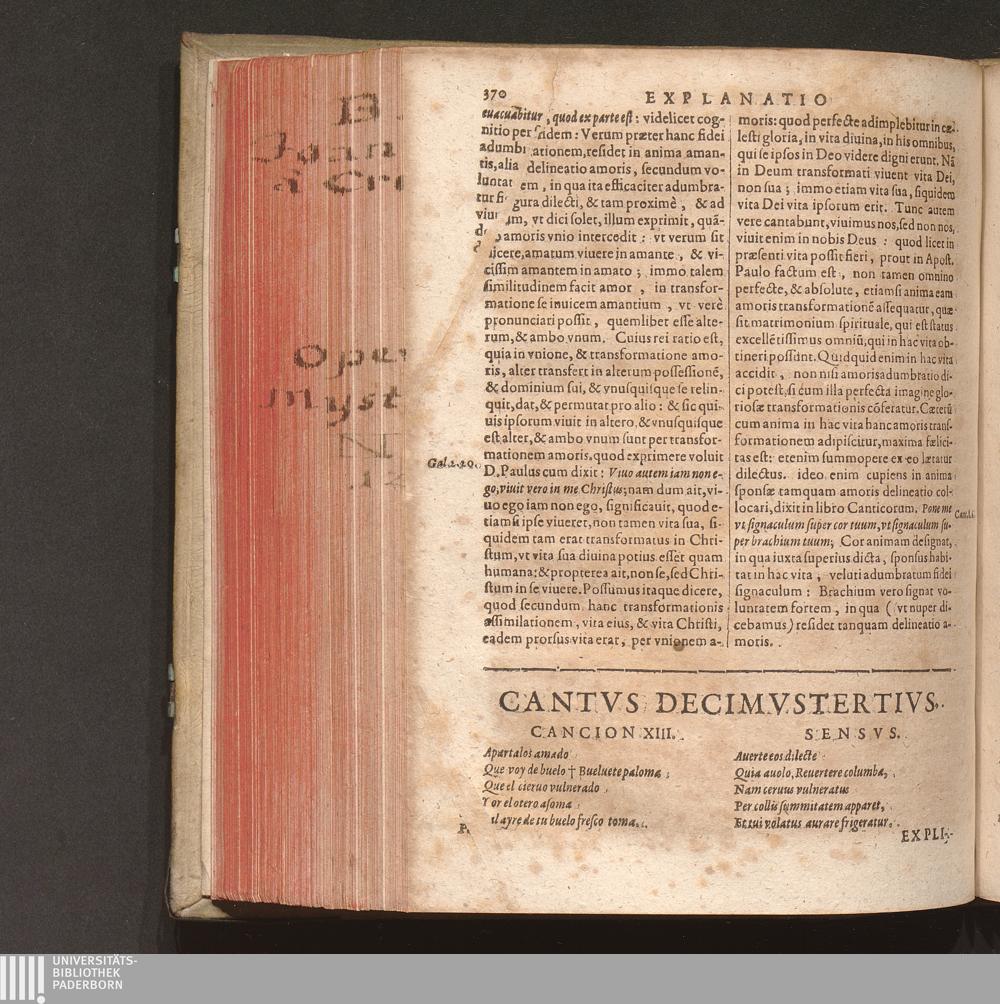 370
EXPLANATIO
euacuabitur, quod ex parte est: videlicet cog-
nitio per fidem: Verum præter hanc fidei
adumbrationem, residet in anima aman-
tis, alia delineatio amoris, secundum vo-
luntatem, in qua ita efficaciter adumbra-
tur figura dilecti, & tam proximè, & ad
viuum, vt dici solet, illum exprimit, quã-
do amoris vnio intercedit: vt verum sit
dicere, amatum viuere in amante, & vi-
cissim amantem in amato; immo talem
similitudinem facit amor, in transfor-
matione se inuicem amantium, vt verè
pronunciari possit, quemlibet esse alte-
rum, & ambo vnum. Cuius rei ratio est,
quia in vnione, & transformatione amo-
ris, alter transfert in alterum possessionẽ,
& dominium sui, & vnusquisque se relin-
quit, dat, & permutat pro alio: & sic qui-
uis ipsorum viuit in altero, & vnusquisque
est alter, & ambo vnum sunt per transfor-
mationem amoris. quod exprimere voluit
Gal. 2. 20.
D. Paulus cum dixit: Viuo autem iam non e-
go, viuit vero in me Christus; nam dum ait, vi-
uo ego iam non ego, significauit, quod e-
tiamsi ipse viueret, non tamen vita sua, si-
quidem tam erat transformatus in Chri-
stum, vt vita sua diuina potius esset quam
humana: & propterea ait, non se, sed Chri-
stum in se viuere. Possumus itaque dicere,
quod secundum hanc transformationis
assimilationem, vita eius, & vita Christi,
eadem prorsus vita erat, per vnionem a-
moris: quod perfecte adimplebitur in cæ-
lesti gloria, in vita diuina, in his omnibus,
qui se ipsos in Deo videre digni erunt. Nã
in Deum transformati viuent vita Dei,
non sua; immo etiam vita sua, siquidem
vita Dei vita ipsorum erit. Tunc autem
vere cantabunt, viuimus nos, sed non nos,
viuit enim in nobis Deus: quod licet in
præsenti vita possit fieri, prout in Apost.
Paulo factum est, non tamen omnino
perfecte, & absolute, etiamsi anima eam
amoris transformationẽ assequatur, quæ
sit matrimonium spirituale, qui est status
excellẽtissimus omniũ, qui in hac vita ob-
tineri possunt. Quidquid enim in hac vita
accidit, non nisi amoris adumbratio di-
ci potest, si cum illa perfecta imagine glo-
riosæ transformationis cõferatur. Cæterũ
cum anima in hac vita hanc amoris trans-
formationem adipiscitur, maxima fælici-
tas est: etenim summopere ex eo lætatur
dilectus. ideo enim cupiens in anima
sponsæ tamquam amoris delineatio col-
locari, dixit in libro Canticorum. Pone me
vt signaculum super cor tuum, vt signaculum su-
per brachium tuum; Cor animam designat,
in qua iuxta superius dicta, sponsus habi-
tat in hac vita, veluti adumbratum fidei
signaculum: Brachium vero signat vo-
luntatem fortem, in qua (vt nuper di-
cebamus) residet tanquam delineatio a-
moris.
CANTVS DECIMVSTERTIVS.
CANCION XIII.
Apartalos amado
Que voy de buelo † Bueluete paloma;
Que el cieruo vulnerado
Por el otero asoma
Al ayre de tu buelo fresco toma.
SENSVS.
Auerte eos dilecte
Quia auolo, Reuertere columba,
Nam ceruus vulneratus
Per collis summitatem apparet,
Et tui volatus aura refrigeratur.
EXPLI-
UNIVERSITÄTS-
BIBLIOTHEK
PADERBORN